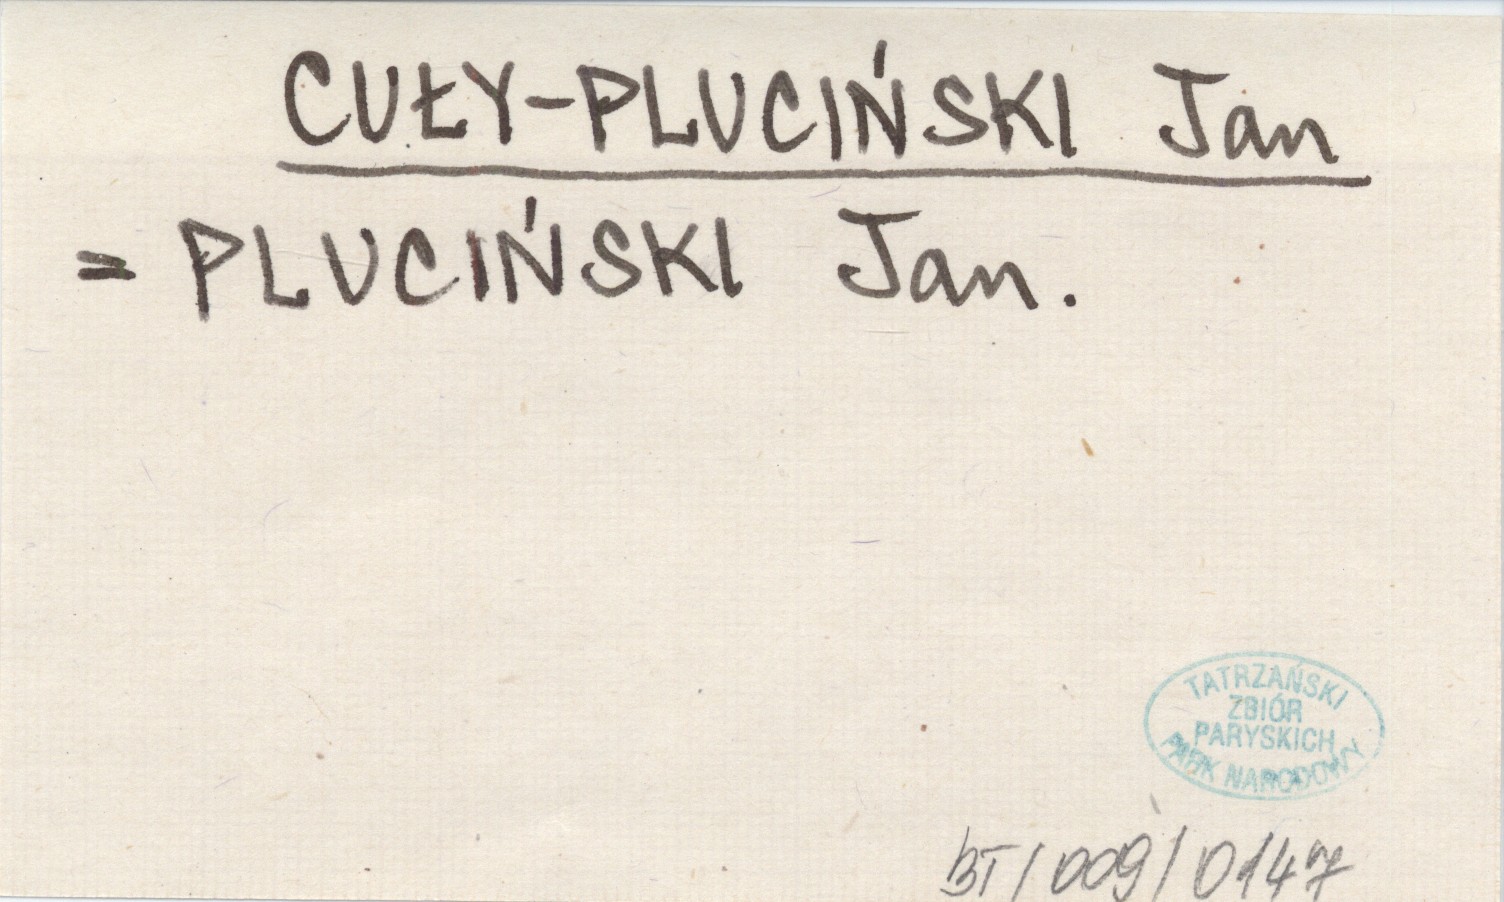 CUŁY-PLUCIŃSKI Jan
= PLUCIŃSKI Jan.
TATRZAŃSKI
ZBIÓR
PARYSKICH
PARK NARODOWY
BT/009/0147